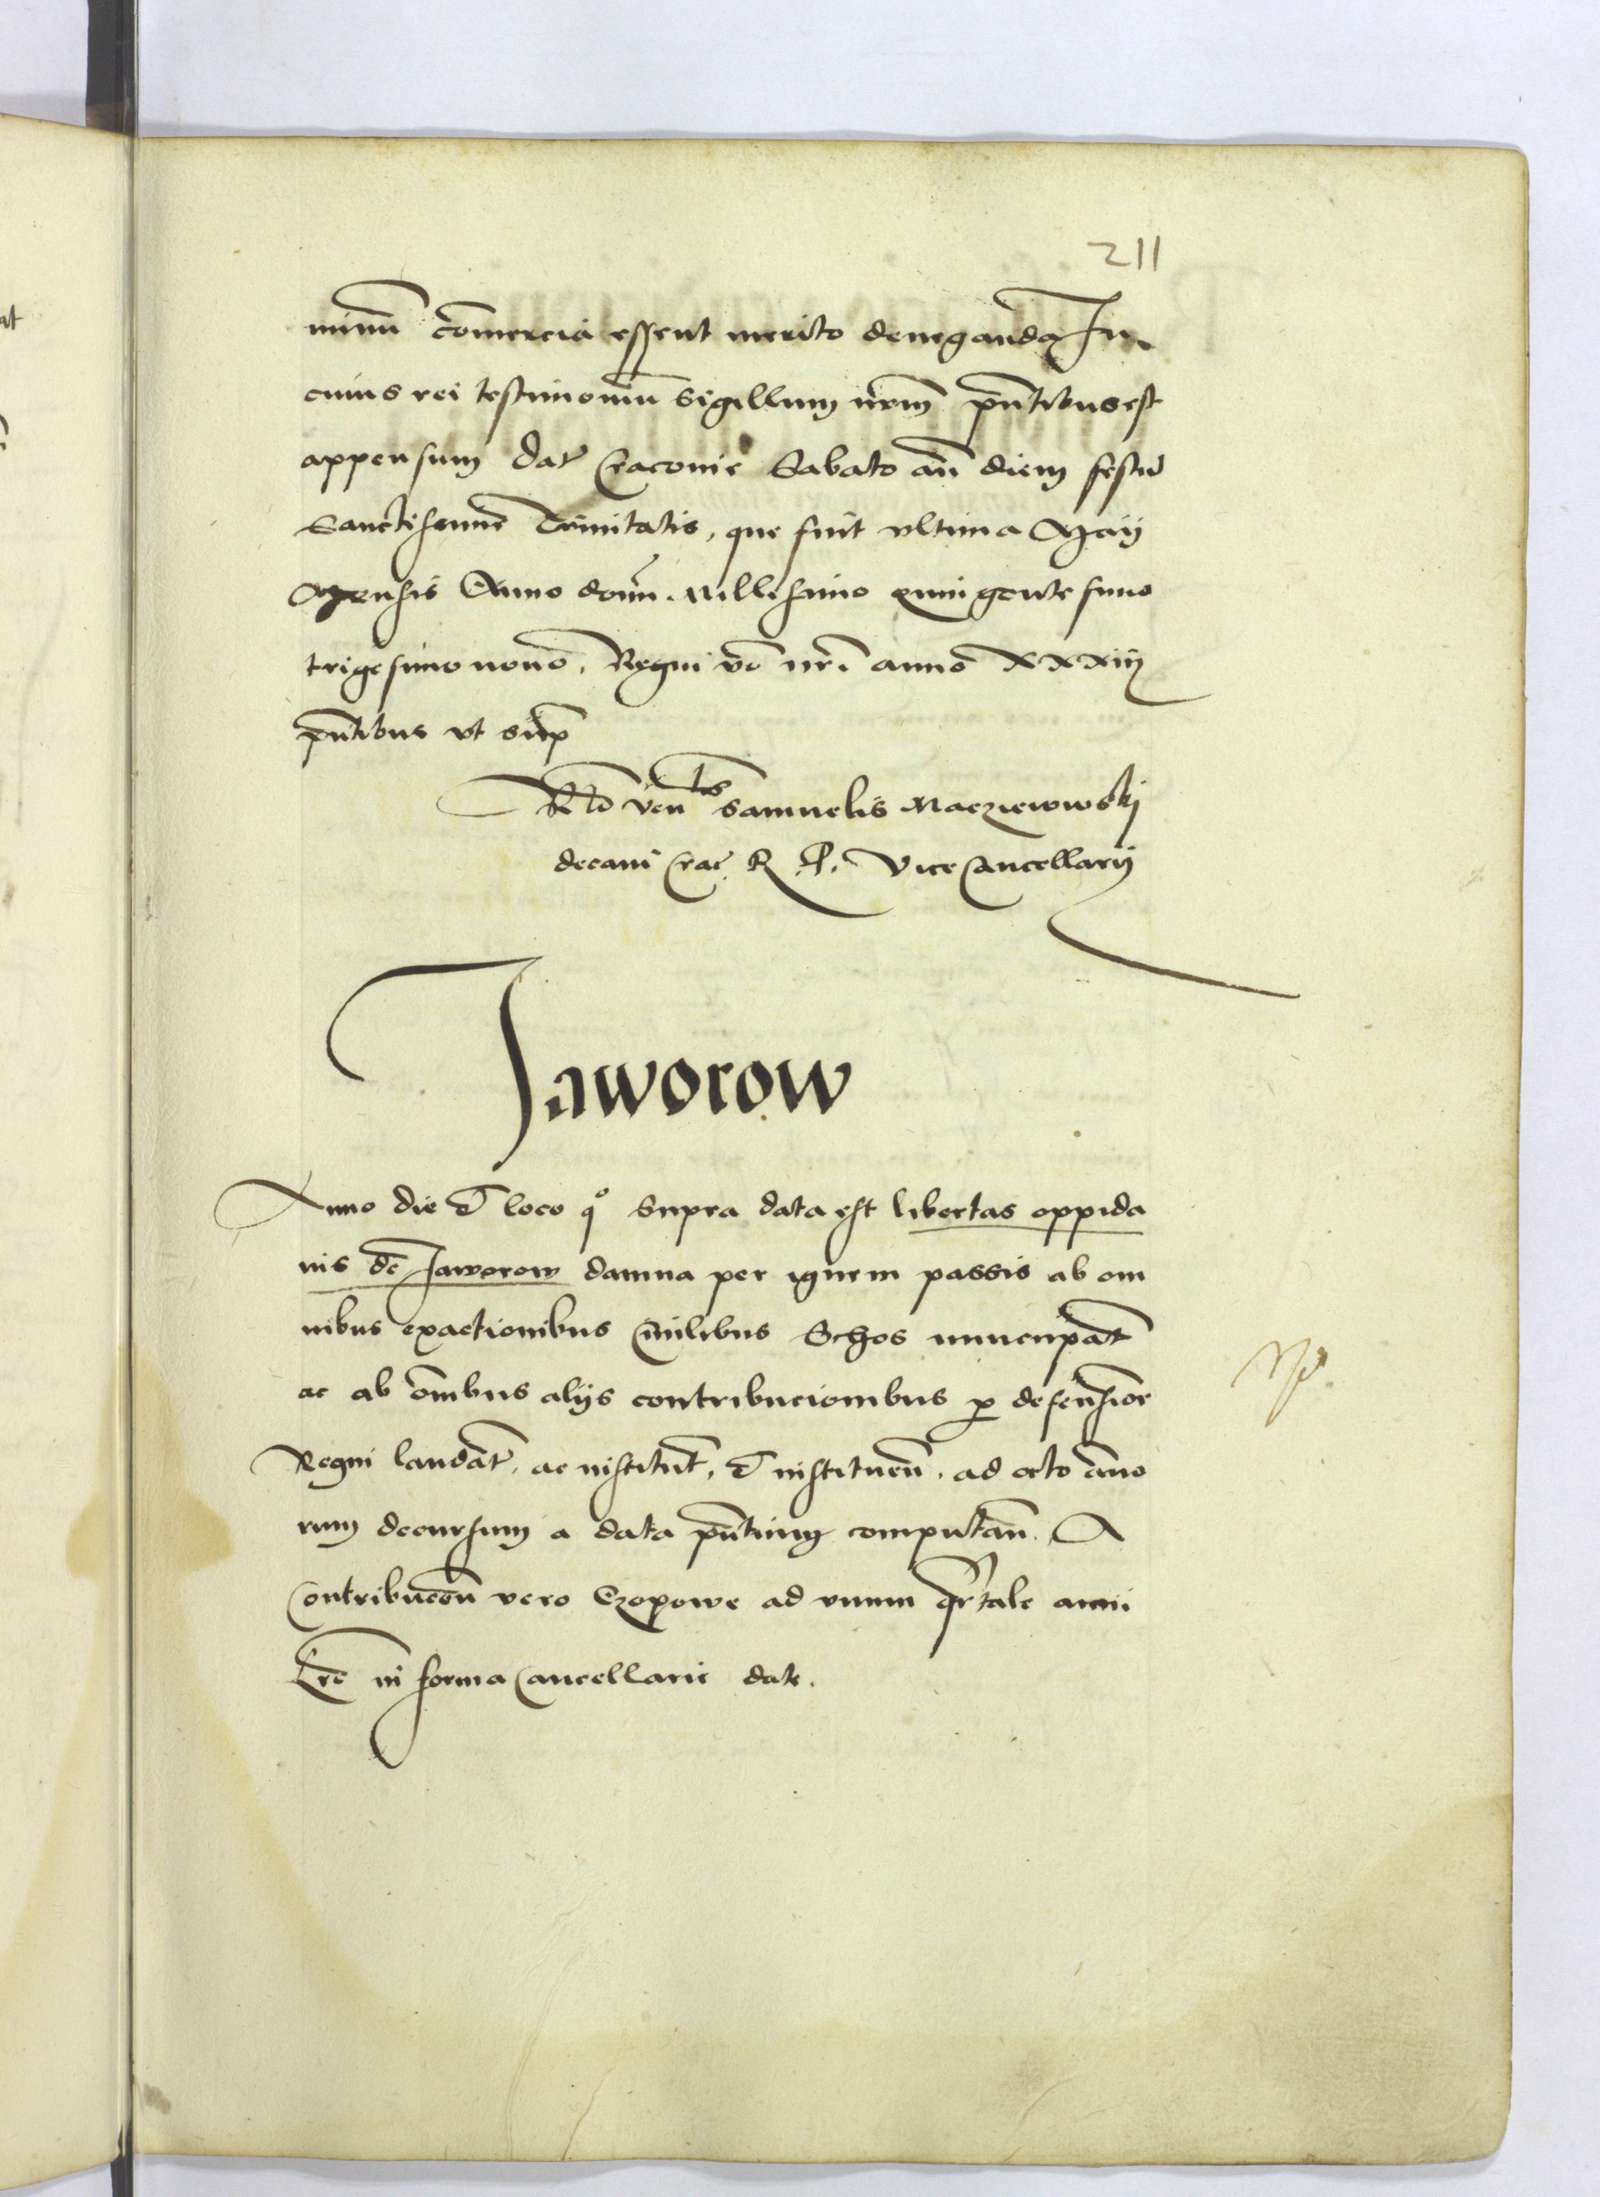 211
minū cōmercia essent merito deneganda In
cuius rei testimoniū Sigillum nr̄m pn̄tibus est
appensum dat̄ Cracouie Sabato an̄ diem festū
Sanctissime Trinitatis, que fuit vltima Maij
Mensis Anno domī. Millesimo quingentesimo
trigesimo nono. Regni vo nr̄i anno xxxiij
pn̄tibus vt sup
Rlo ven̄ Samuelis Macziewowskj
decani Crac̄. R. P. Vice Cancellarij
Jaworow
Anno die et loco qº supra data est libertas oppida
nis de Jaworow damna per ignem passis ab om
nibus exactionibus Ciuilibus Schos nuncupat̄
ac ab om̄ibus alijs contribucionibus p defension̄
Regni laudat̄, ac institut̄, et instituen̄. ad octo anno
rum decursum a data pn̄tium computan̄. A
Contribucōn vero Czopowe ad vnum qr̄tale anni
Lr̄e in forma Cancellarie date.